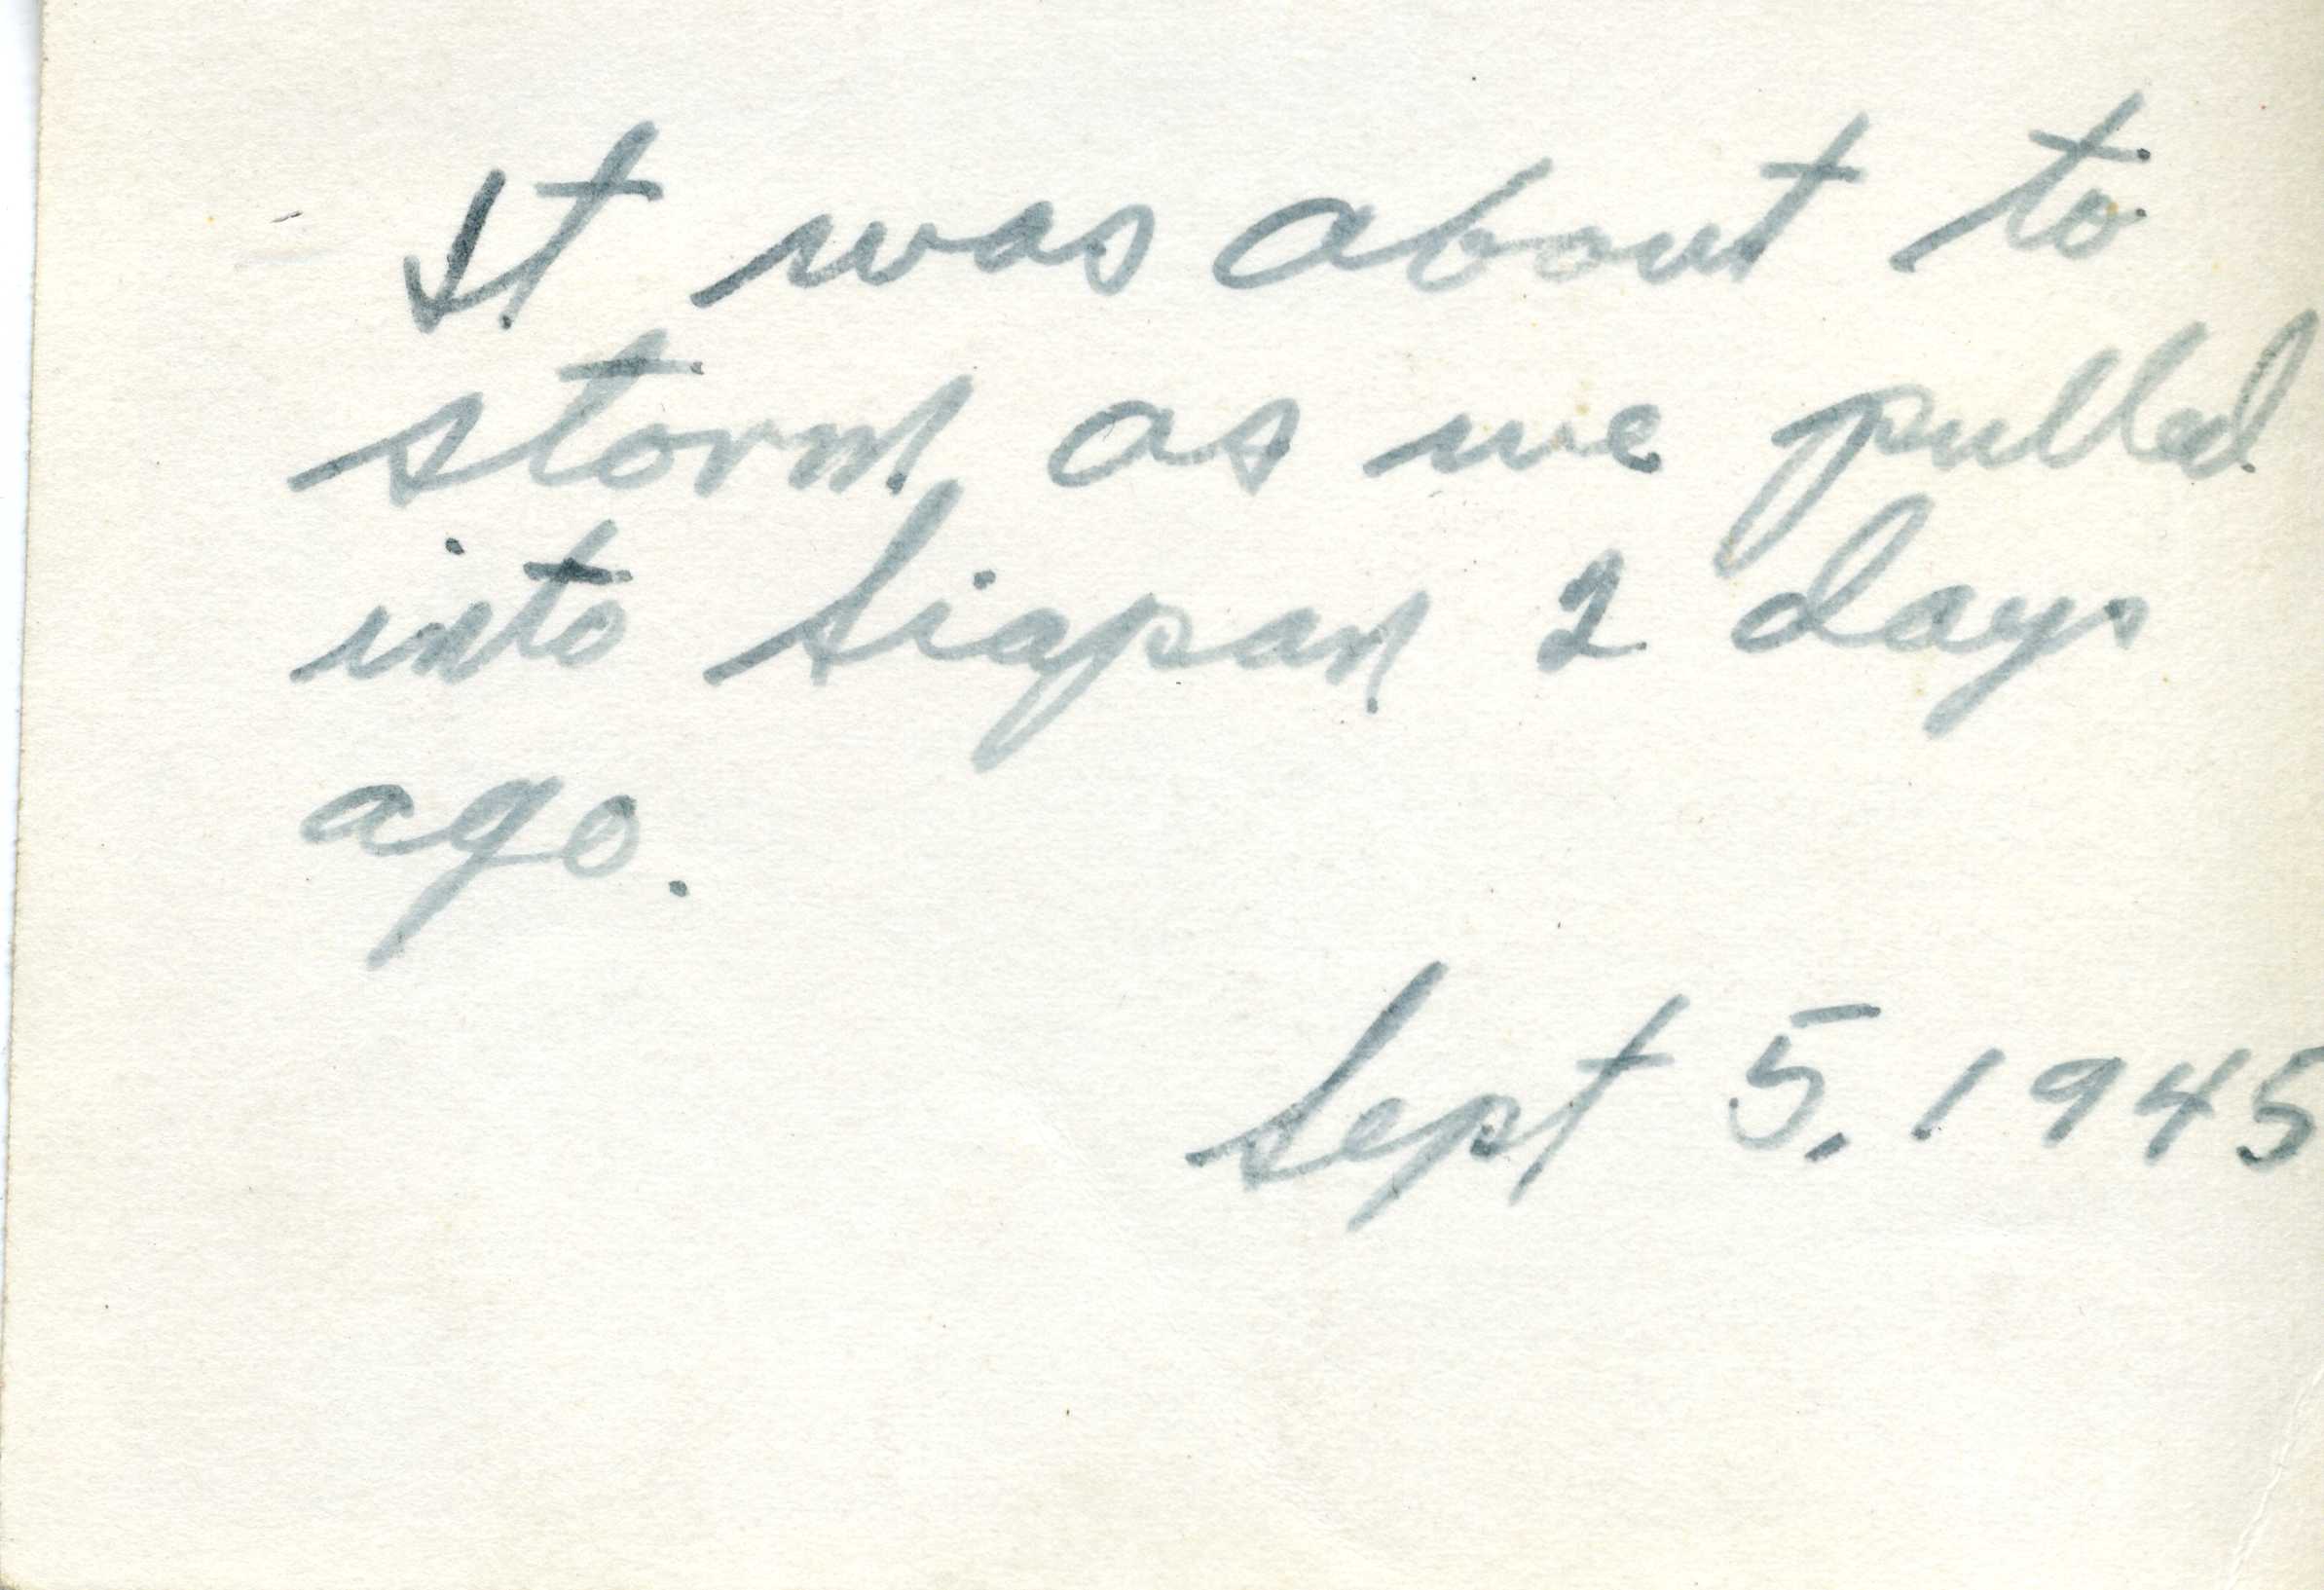 It was about to
storm as we pulled
into Siapan 2 days
ago.
Sept 5, 1945